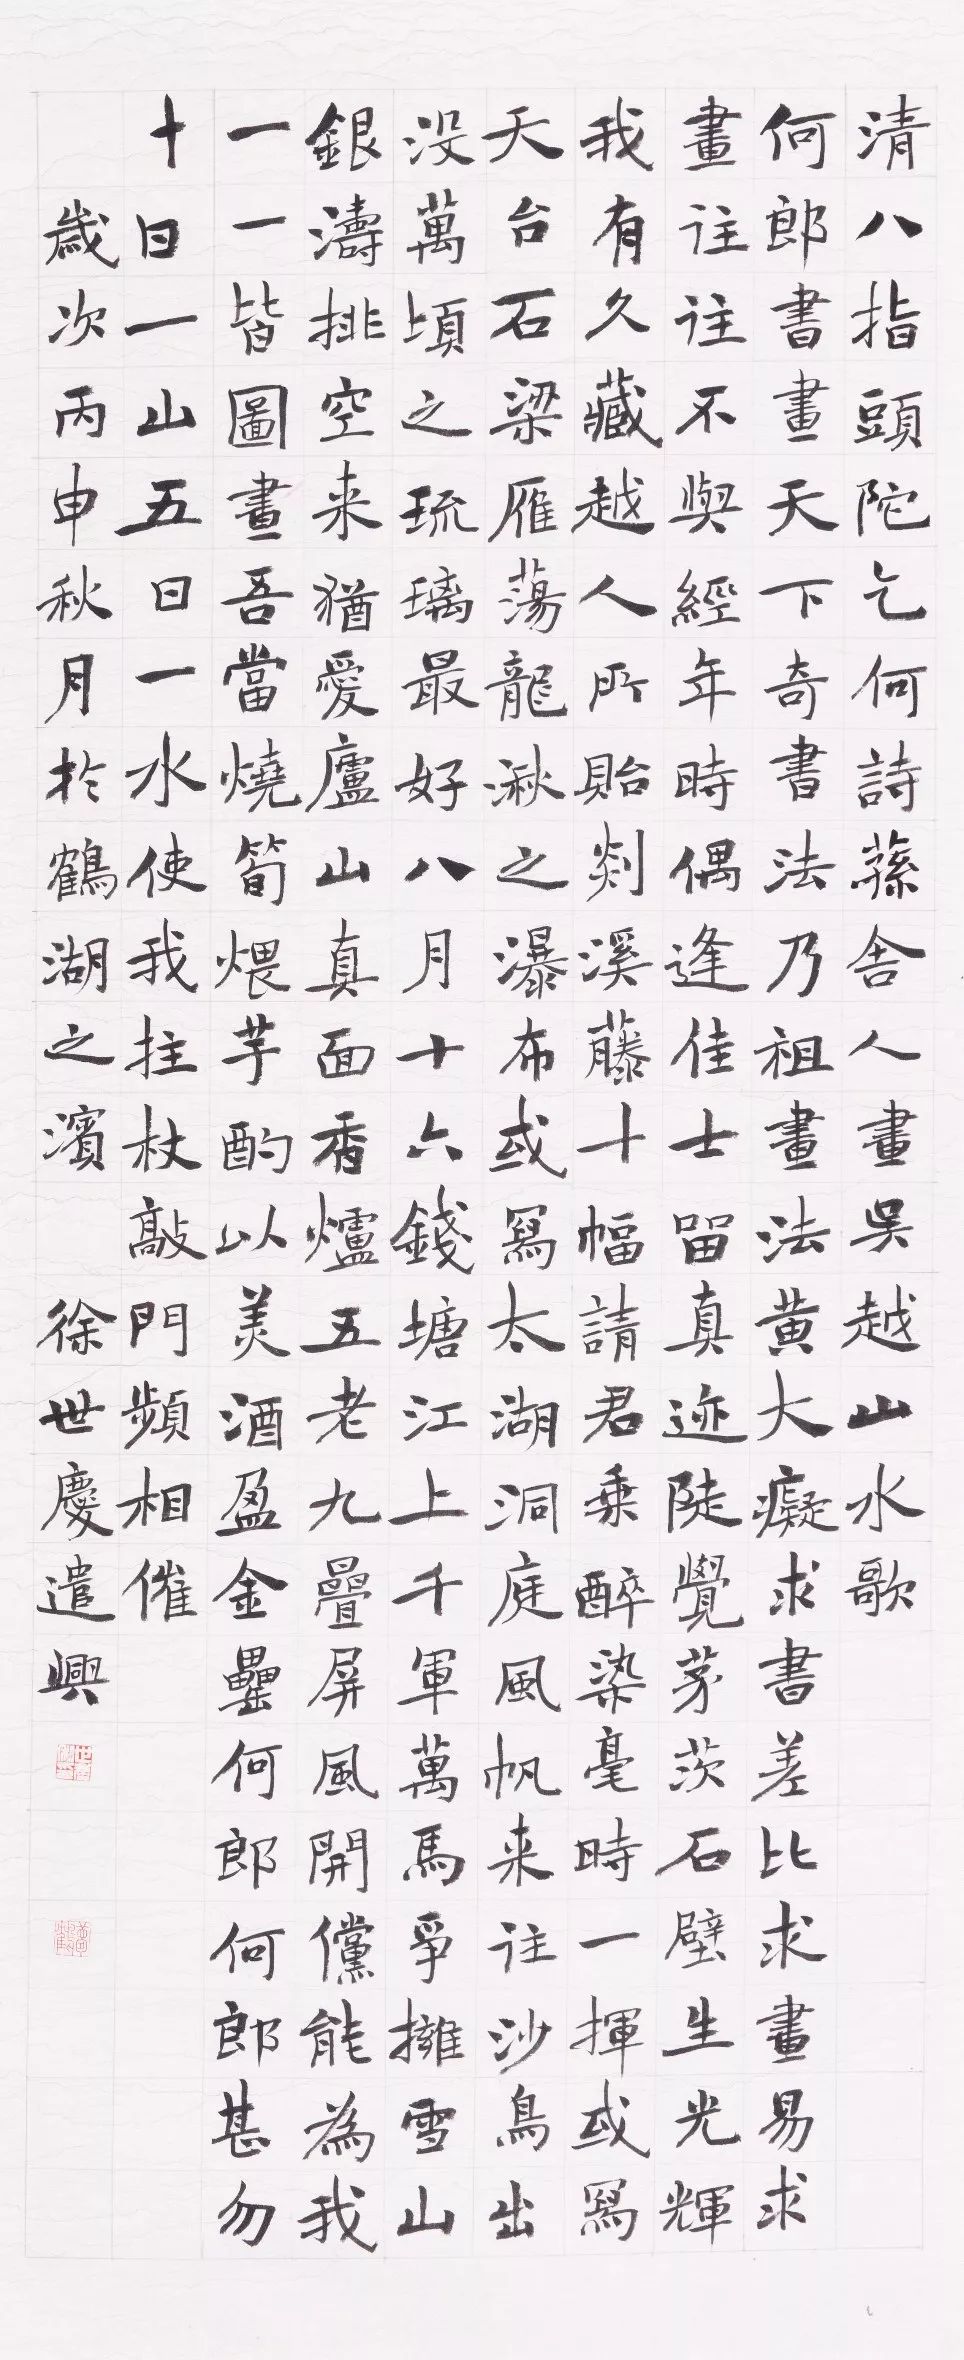 清八指頭陀乞何詩蓀舍人畫吳越山水歌
何郎書畫天下奇書法乃祖畫法黄大癡求書差比求畫易求
畫往往不與經年時偶逢佳士留真迹陡覺茅茨石壁生光輝
我有久藏越人所貽剡溪藤十幅請君乗醉染毫時一揮或寫
天台石梁雁蕩龍湫之瀑布或寫太湖洞庭風帆来往沙鳥出
没萬頃之琉璃最好八月十六錢塘江上千軍萬馬爭擁雪山
銀濤排空来猶愛廬山真面香爐五老九疊屏風開儻能為我
一一皆圖畫吾當燒筍煨芋酌以美酒盈金罍何郎何郎甚勿
十日一山五日一水使我拄杖敲門頻相催
歲次丙申秋月於鶴湖之濱 徐世慶遣興